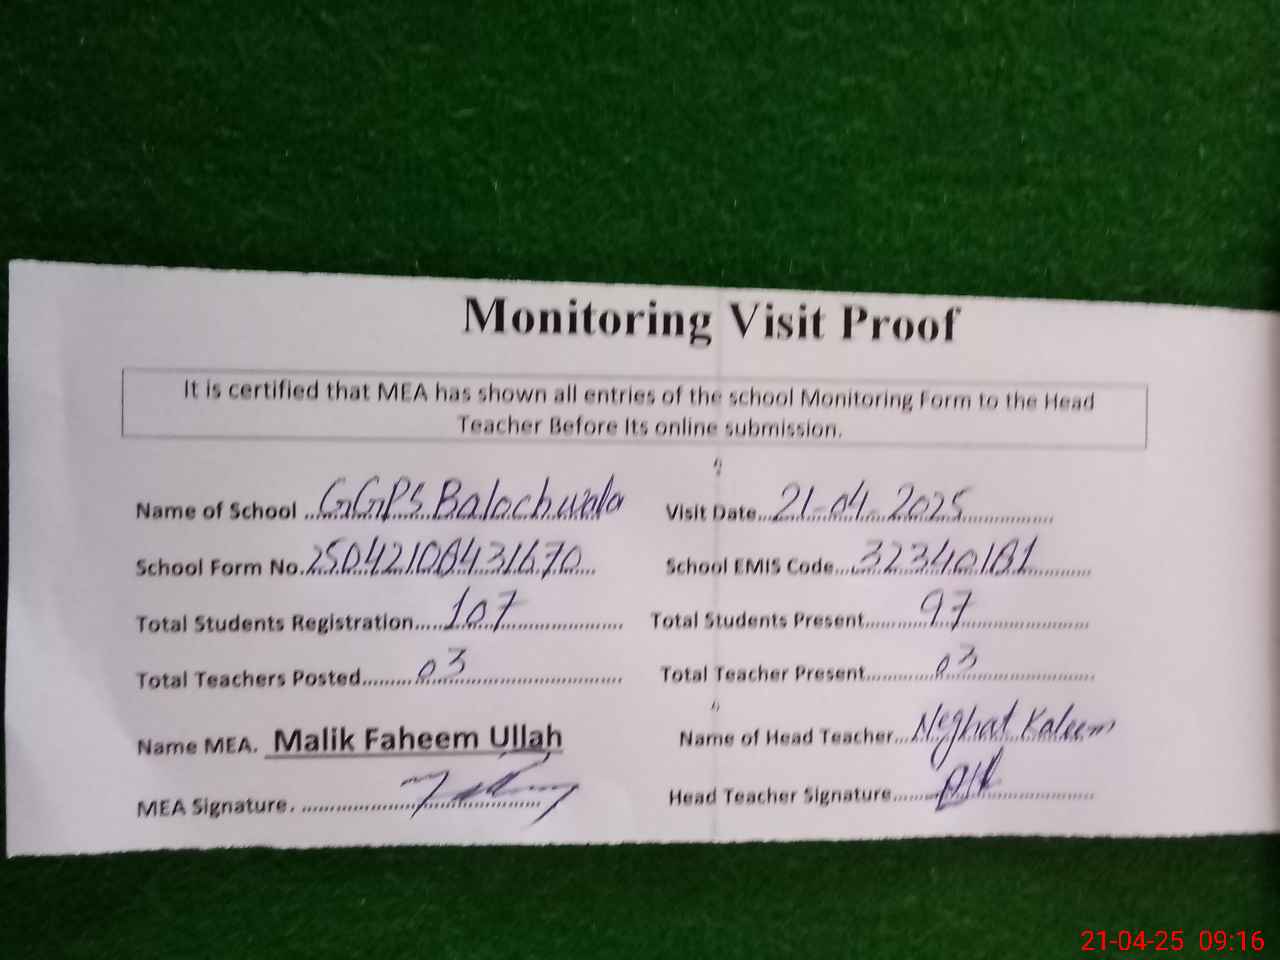 Monitoring Visit Proof
It is certified that MEA has shown all entries of the school Monitoring Form to the Head
Teacher Before Its online submission.
Name of School ....GGPS Balochwala
Visit Date...21-04-2025
School Form No.25042108431670
School EMIS Code...32340181
Total Students Registration.....107
Total Students Present.....97
Total Teachers Posted.....03
Total Teacher Present.....03
Name MEA. Malik Faheem Ullah
Name of Head Teacher...Neghat Kaleem
MEA Signature.
Head Teacher Signature.....
21-04-25 09:16